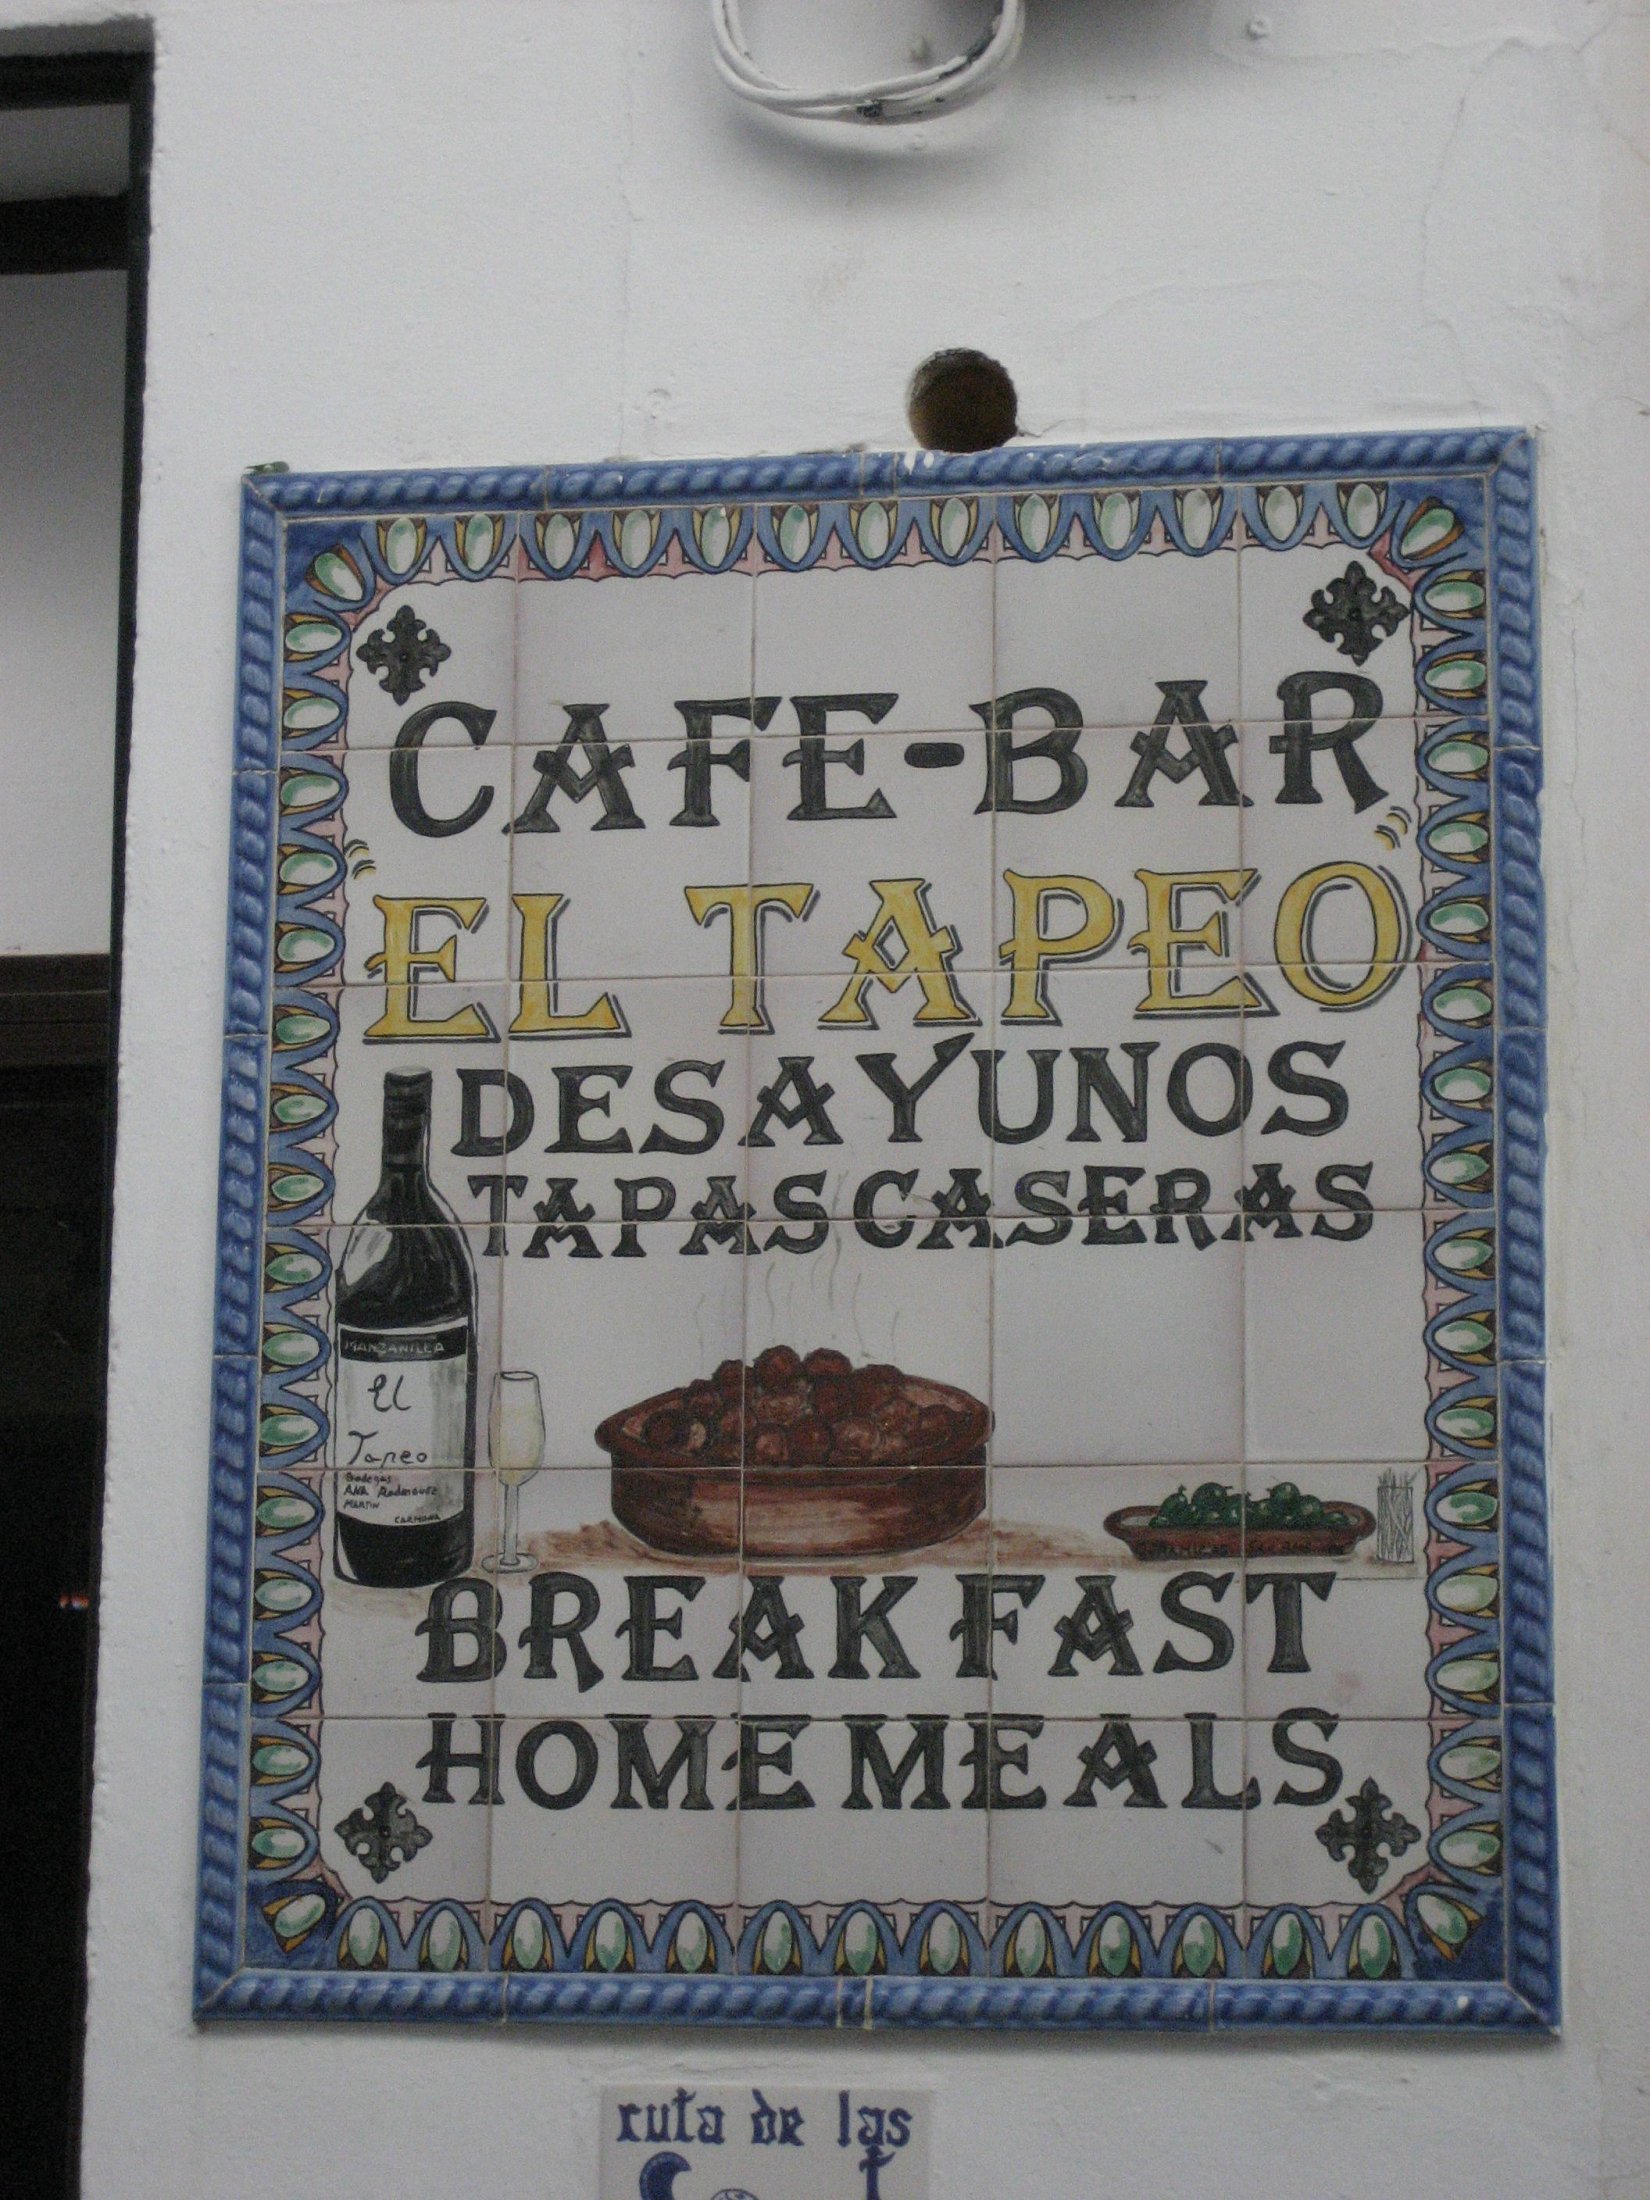 CAFE-BAR
"EL TAPEO"
DESAYUNOS
TAPAS CASERAS
MANZANILLA
El
Tapeo
Bodegas
ANA Rodriguez
MARTIN
CARMONA
BREAKFAST
HOME MEALS
ruta de las